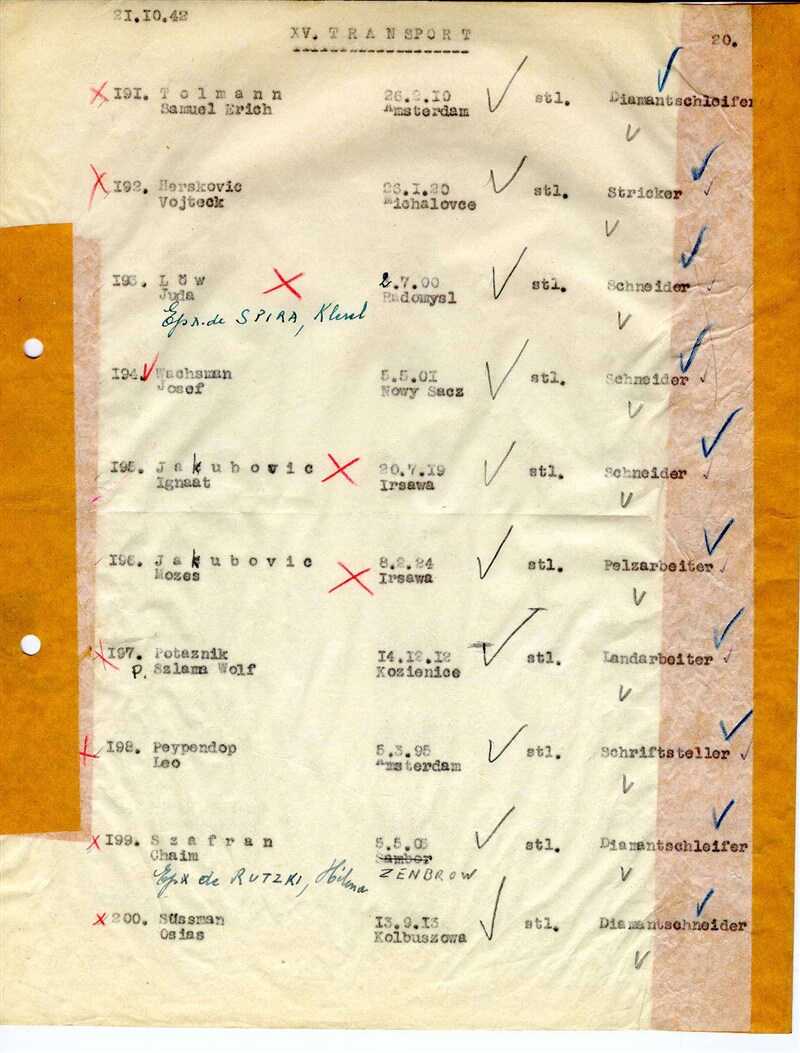 21.10.42
XV. TRANSPORT 20.
191. Tolmann 26.2.10 stl. Diamantschleifer
Samuel Erich Amsterdam
192. Herskovic 26.1.20 stl. Stricker
Vojteck Michalovce
193. Löw 2.7.00 stl. Schneider
Juda Radomysl
Epx.de SPIRA,
194. Wachsman 5.5.01 stl. Schneider
Josef Nowy Sacz
195. Jakubovic 20.7.19 stl. Schneider
Ignaat Irsawa
196. Jakubovic 8.2.24 stl. Pelzarbeiter
Mozes Irsawa
197. Potaznik 14.12.12 stl. Landarbeiter
P. Szlama Wolf Kozienice
198. Peypendop 5.3.95 stl. Schriftsteller
Leo Amsterdam
199. Szafran 5.5.05 stl. Diamantschleifer
Chaim Sambor
Epx de RUTZKI, ZENBROW
200. Süssman 13.9.13 stl. Diamantschneider
Osias Kolbuszowa